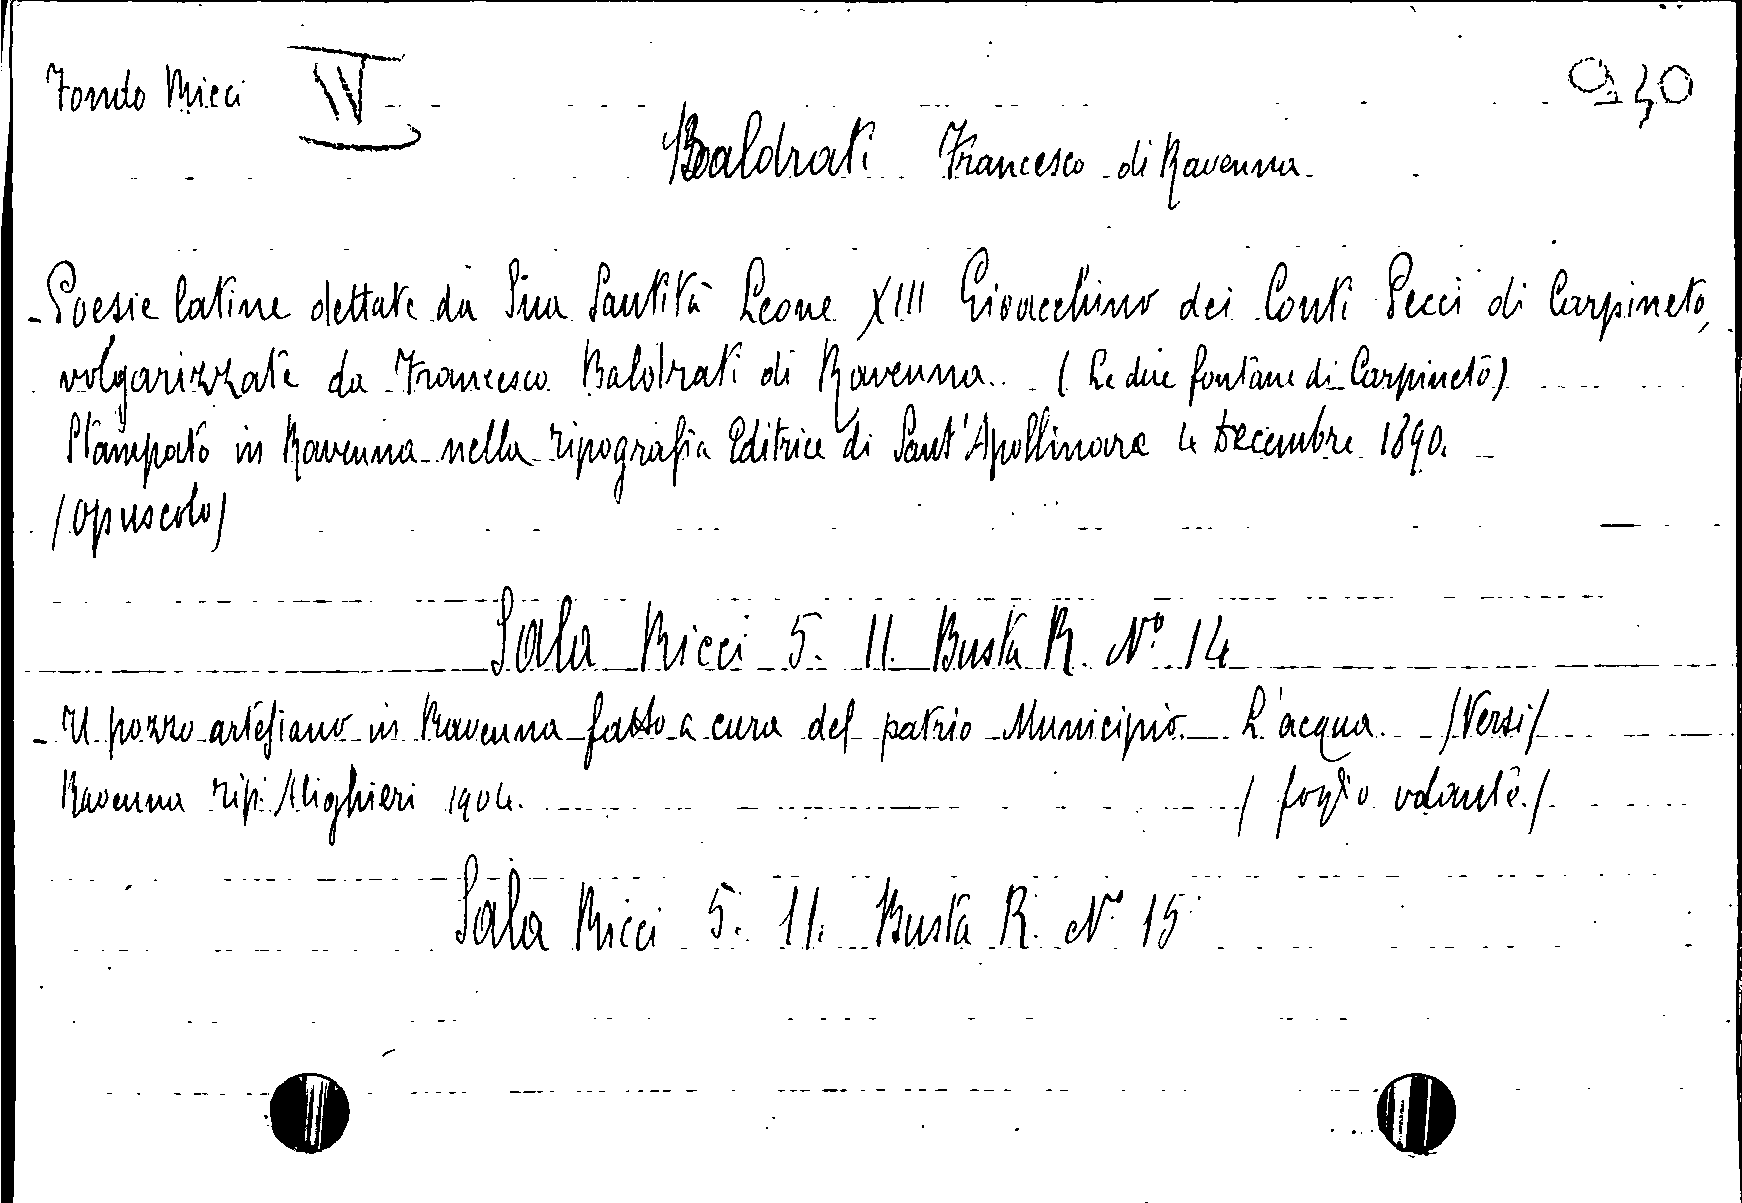 Fondo Ricci IV 940
Baldrati Francesco di Ravenna
- Poesie latine dettate da Sua Santità Leone XIII Gioacchino dei Conti Pecci di Carpineto,
volgarizzate da Francesco Baldrati di Ravenna. (Le due fontane di Carpineto)
Stampato in Ravenna nella Tipografia Editrice di Sant'Apollinare 4 Decembre 1890.
/Opuscolo/
Sala Ricci 5. 11. Busta R. N° 14
- Il pozzo artesiano in Ravenna fatto a cura del patrio Municipio. L'acqua. /Versi/
Ravenna Tip. Alighieri 1904. / foglio volante./
Sala Ricci 5. 11. Busta R. N° 15